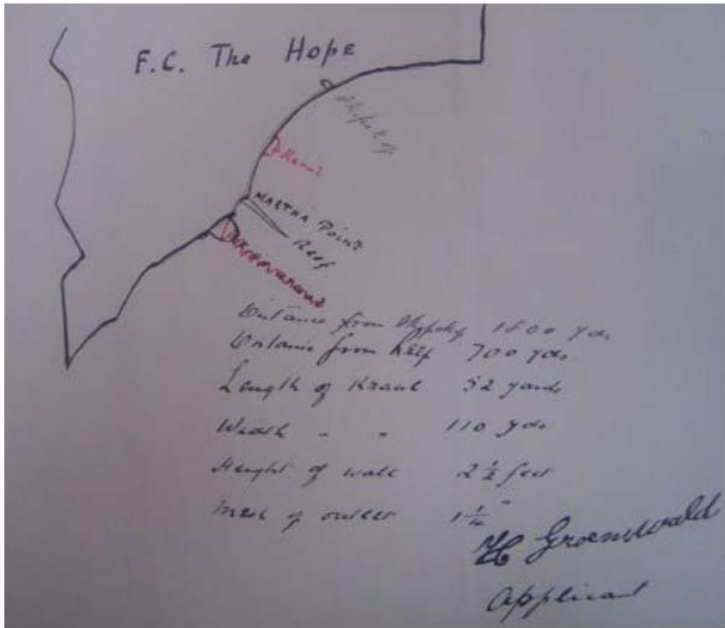 F.C. The Hope
MARTHA Point
Reef
Distance from 1800 yds
Distance from Reef 700 yds
Length of Kraal 52 yards
Width " " 110 yds
Height of wall 2 1/2 feet
Mesh of outlet 1 1/4 "
H Groenewald
Applicant